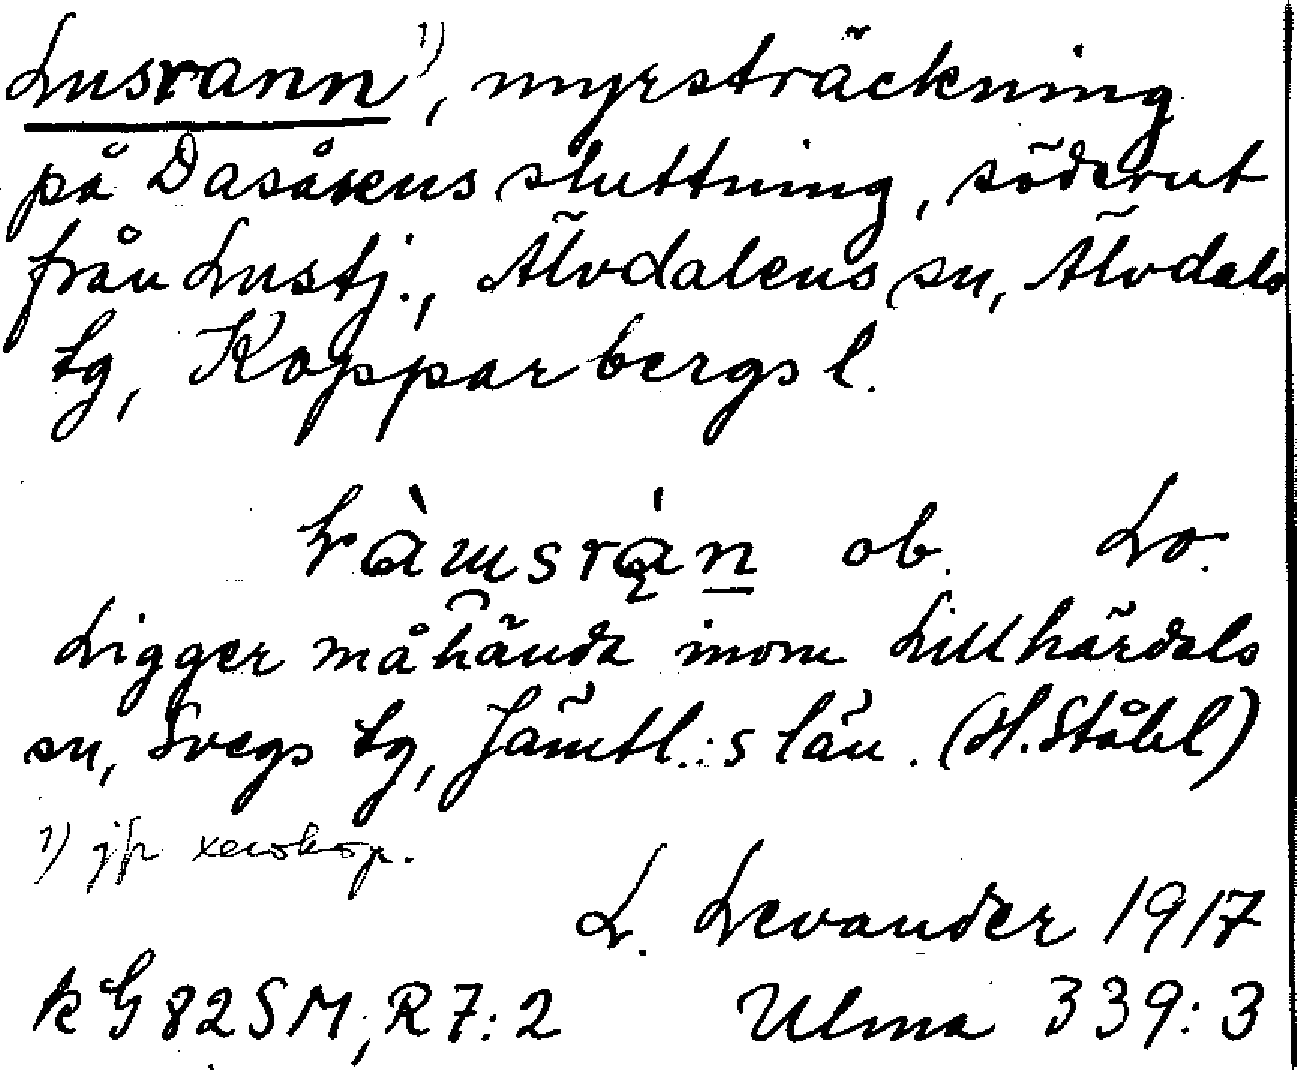 Lusrann ¹⁾, myrsträckning
på Dasåsens sluttning, söderut
från Lustj., Älvdalens sn, Älvdals
tg, Kopparbergs l.
ob. Lo.
Ligger måhända inom Lillhärdals
sn, Svegs tg, Jämtl.:s län. (H. Ståhl)
¹⁾ jfr xerokop.
L. Levander 1917
k G 82 SM, R 7:2 Ulma 339:3